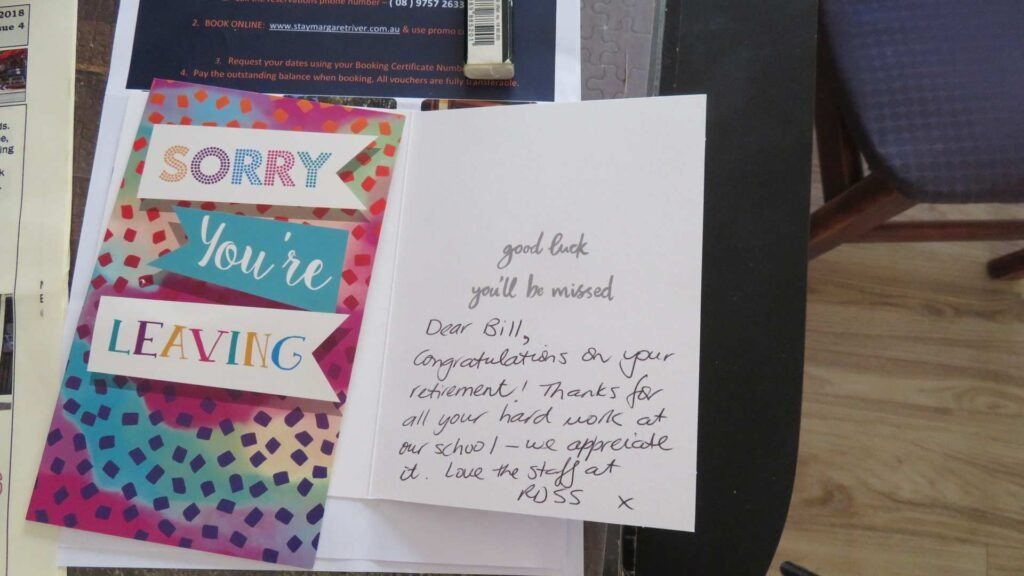 2018
ue 4
the reservations phone number – ( 08 ) 9757 2633
2. BOOK ONLINE: www.staymargaretriver.com.au & use promo c
3. Request your dates using your Booking Certificate Numb
4. Pay the outstanding balance when booking, All vouchers are fully transferable.
SORRY
You're
LEAVING
good luck
you'll be missed
Dear Bill,
Congratulations on your
retirement! Thanks for
all your hard work at
our school – we appreicate
it. Love the staff at
RDSS x